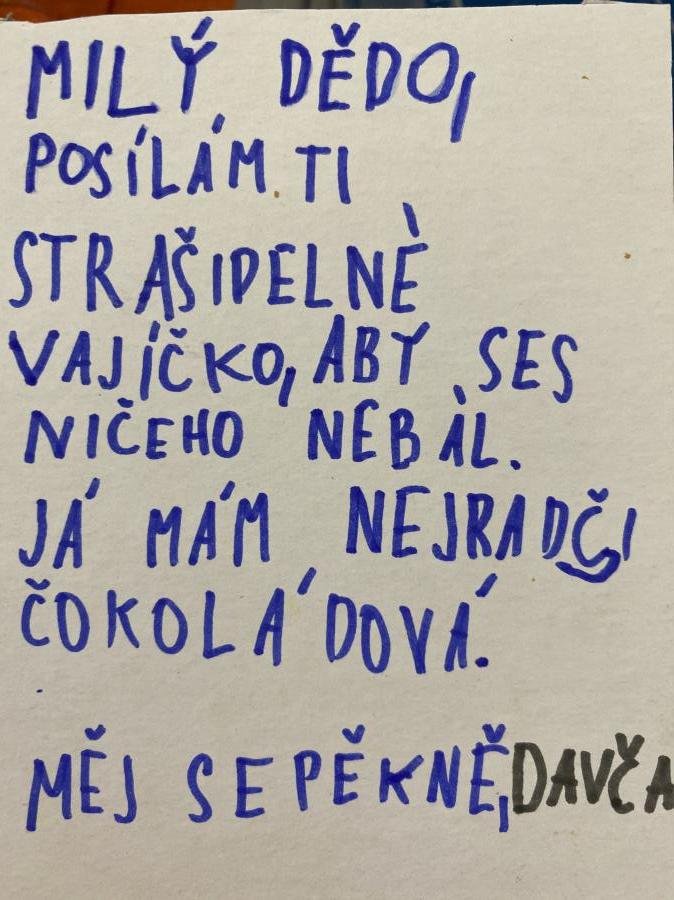 MILÝ DĚDO,
POSÍLÁM TI
STRAŠIDELNÈ
VAJÍČKO, ABY SES
NIČEHO NEBÁL.
JÁ MÁM NEJRADČI
ČOKOLÁDOVÁ.
MĚJ SE PĚKNĚ, DAVČA